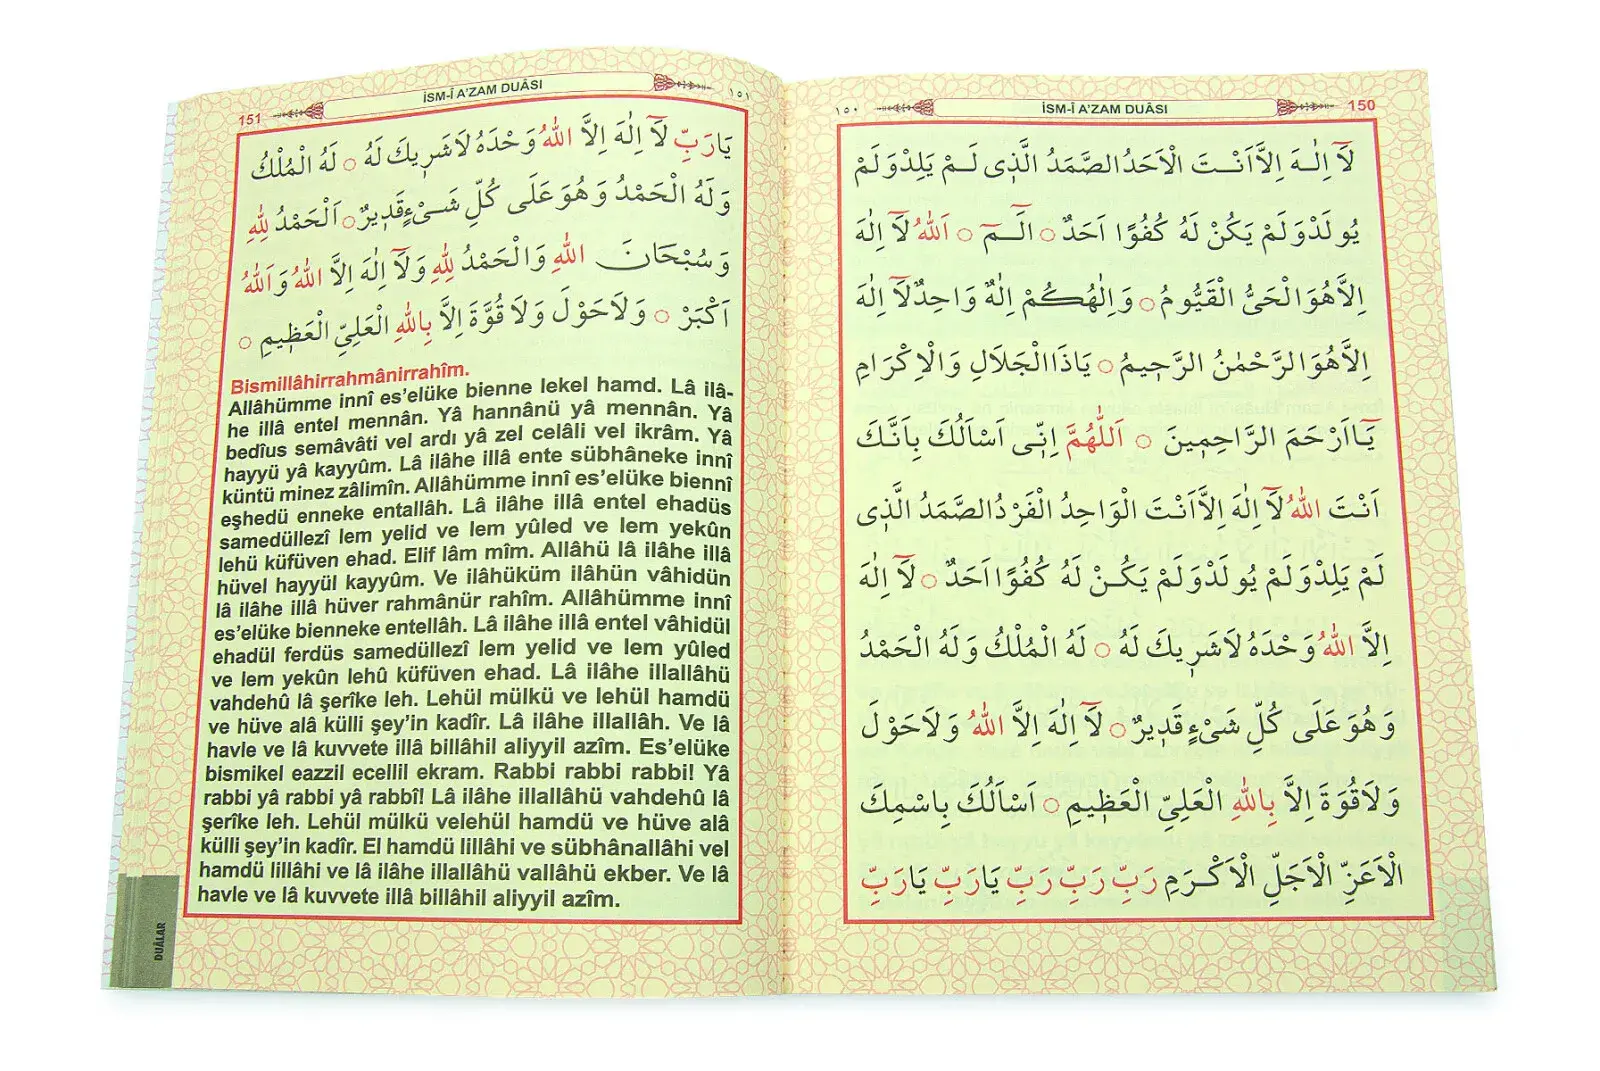 İSM-Î A'ZAM DUÂSI
150
١٥٠
لَٓا اِلٰـهَ اِلَّا اَنْـتَ الْاَحَدُ الصَّمَدُ الَّذ۪ى لَـمْ يَلِدْ وَلَمْ
يُولَدْ وَلَمْ يَكُنْ لَهُ كُفُوًا اَحَدٌ ○ الٓـمٓ ○ اَللّٰهُ لَٓا اِلٰهَ
اِلَّا هُوَ الْحَىُّ الْقَيُّومُ ○ وَاِلٰهُكُمْ اِلٰهٌ وَاحِدٌ لَٓا اِلٰهَ
اِلَّا هُوَ الرَّحْمٰنُ الرَّح۪يمُ ○ يَاذَا الْجَلَالِ وَالْاِكْرَامِ
يَٓا اَرْحَمَ الرَّاحِم۪ينَ ○ اَللّٰهُمَّ اِنّ۪ى اَسْاَلُكَ بِاَنَّكَ
اَنْتَ اللّٰهُ لَٓا اِلٰهَ اِلَّا اَنْتَ الْوَاحِدُ الْفَرْدُ الصَّمَدُ الَّذ۪ى
لَمْ يَلِدْ وَلَمْ يُولَدْ وَلَمْ يَكُـنْ لَهُ كُفُوًا اَحَدٌ ○ لَٓا اِلٰهَ
اِلَّا اللّٰهُ وَحْدَهُ لَا شَر۪يكَ لَهُ ○ لَهُ الْمُلْكُ وَلَهُ الْحَمْدُ
وَهُوَ عَلَى كُلِّ شَىْءٍ قَد۪يرٌ ○ لَٓا اِلٰهَ اِلَّا اللّٰهُ وَلَا حَوْلَ
وَلَا قُوَّةَ اِلَّا بِاللّٰهِ الْعَلِىِّ الْعَظ۪يمِ ○ اَسْاَلُكَ بِاسْمِكَ
الْاَعَزِّ الْاَجَلِّ الْاَكْـرَمِ رَبِّ رَبِّ رَبِّ يَارَبِّ يَارَبِّ
151
İSM-Î A'ZAM DUÂSI
١٥١
يَارَبِّ لَٓا اِلٰهَ اِلَّا اللّٰهُ وَحْدَهُ لَا شَر۪يكَ لَهُ ○ لَهُ الْمُلْكُ
وَلَهُ الْحَمْدُ وَهُوَ عَلَى كُلِّ شَـىْءٍ قَد۪يرٌ ○ اَلْحَمْدُ لِلّٰهِ
وَسُبْحَانَ اللّٰهِ وَالْحَمْدُ لِلّٰهِ وَلَٓا اِلٰهَ اِلَّا اللّٰهُ وَاَللّٰهُ
اَكْبَرْ ○ وَلَا حَوْلَ وَلَا قُوَّةَ اِلَّا بِاللّٰهِ الْعَلِىِّ الْعَظ۪يمِ ○
Bismillâhirrahmânirrahîm.
Allâhümme innî es'elüke bienne lekel hamd. Lâ ilâ-
he illâ entel mennân. Yâ hannânü yâ mennân. Yâ
bedîus semâvâti vel ardı yâ zel celâli vel ikrâm. Yâ
hayyü yâ kayyûm. Lâ ilâhe illâ ente sübhâneke innî
küntü minez zâlimîn. Allâhümme innî es'elüke biennî
eşhedü enneke entallâh. Lâ ilâhe illâ entel ehadüs
samedüllezî lem yelid ve lem yûled ve lem yekûn
lehü küfüven ehad. Elif lâm mîm. Allâhü lâ ilâhe illâ
hüvel hayyül kayyûm. Ve ilâhüküm ilâhün vâhidün
lâ ilâhe illâ hüver rahmânür rahîm. Allâhümme innî
es'elüke bienneke entellâh. Lâ ilâhe illâ entel vâhidül
ehadül ferdüs samedüllezî lem yelid ve lem yûled
ve lem yekûn lehû küfüven ehad. Lâ ilâhe illallâhü
vahdehû lâ şerîke leh. Lehül mülkü ve lehül hamdü
ve hüve alâ külli şey'in kadîr. Lâ ilâhe illallâh. Ve lâ
havle ve lâ kuvvete illâ billâhil aliyyil azîm. Es'elüke
bismikel eazzil ecellil ekram. Rabbi rabbi rabbi! Yâ
rabbi yâ rabbi yâ rabbî! Lâ ilâhe illallâhü vahdehû lâ
şerîke leh. Lehül mülkü velehül hamdü ve hüve alâ
külli şey'in kadîr. El hamdü lillâhi ve sübhânallâhi vel
hamdü lillâhi ve lâ ilâhe illallâhü vallâhü ekber. Ve lâ
havle ve lâ kuvvete illâ billâhil aliyyil azîm.
DUÂLAR